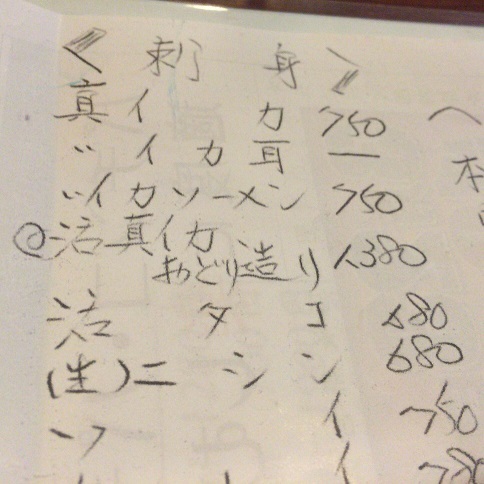 < 刺身 >
真イカ 750
〃イカ耳 ー
〃イカソーメン 750
◎活真イカ
おどり造り 1,380
活タコ 680
(生)ニシン 680
750